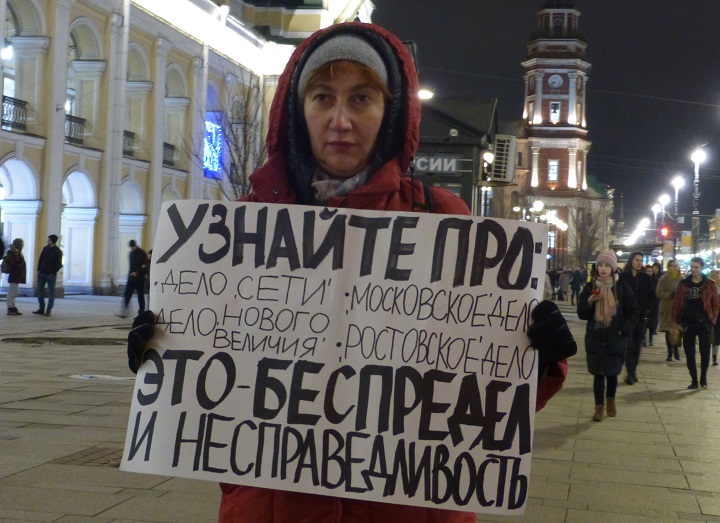 УЗНАЙТЕ ПРО:
· ДЕЛО „СЕТИ"
· ДЕЛО „НОВОГО ВЕЛИЧИЯ"
· „МОСКОВСКОЕ" ДЕЛО
· „РОСТОВСКОЕ" ДЕЛО
ЭТО - БЕСПРЕДЕЛ
И НЕСПРАВЕДЛИВОСТЬ